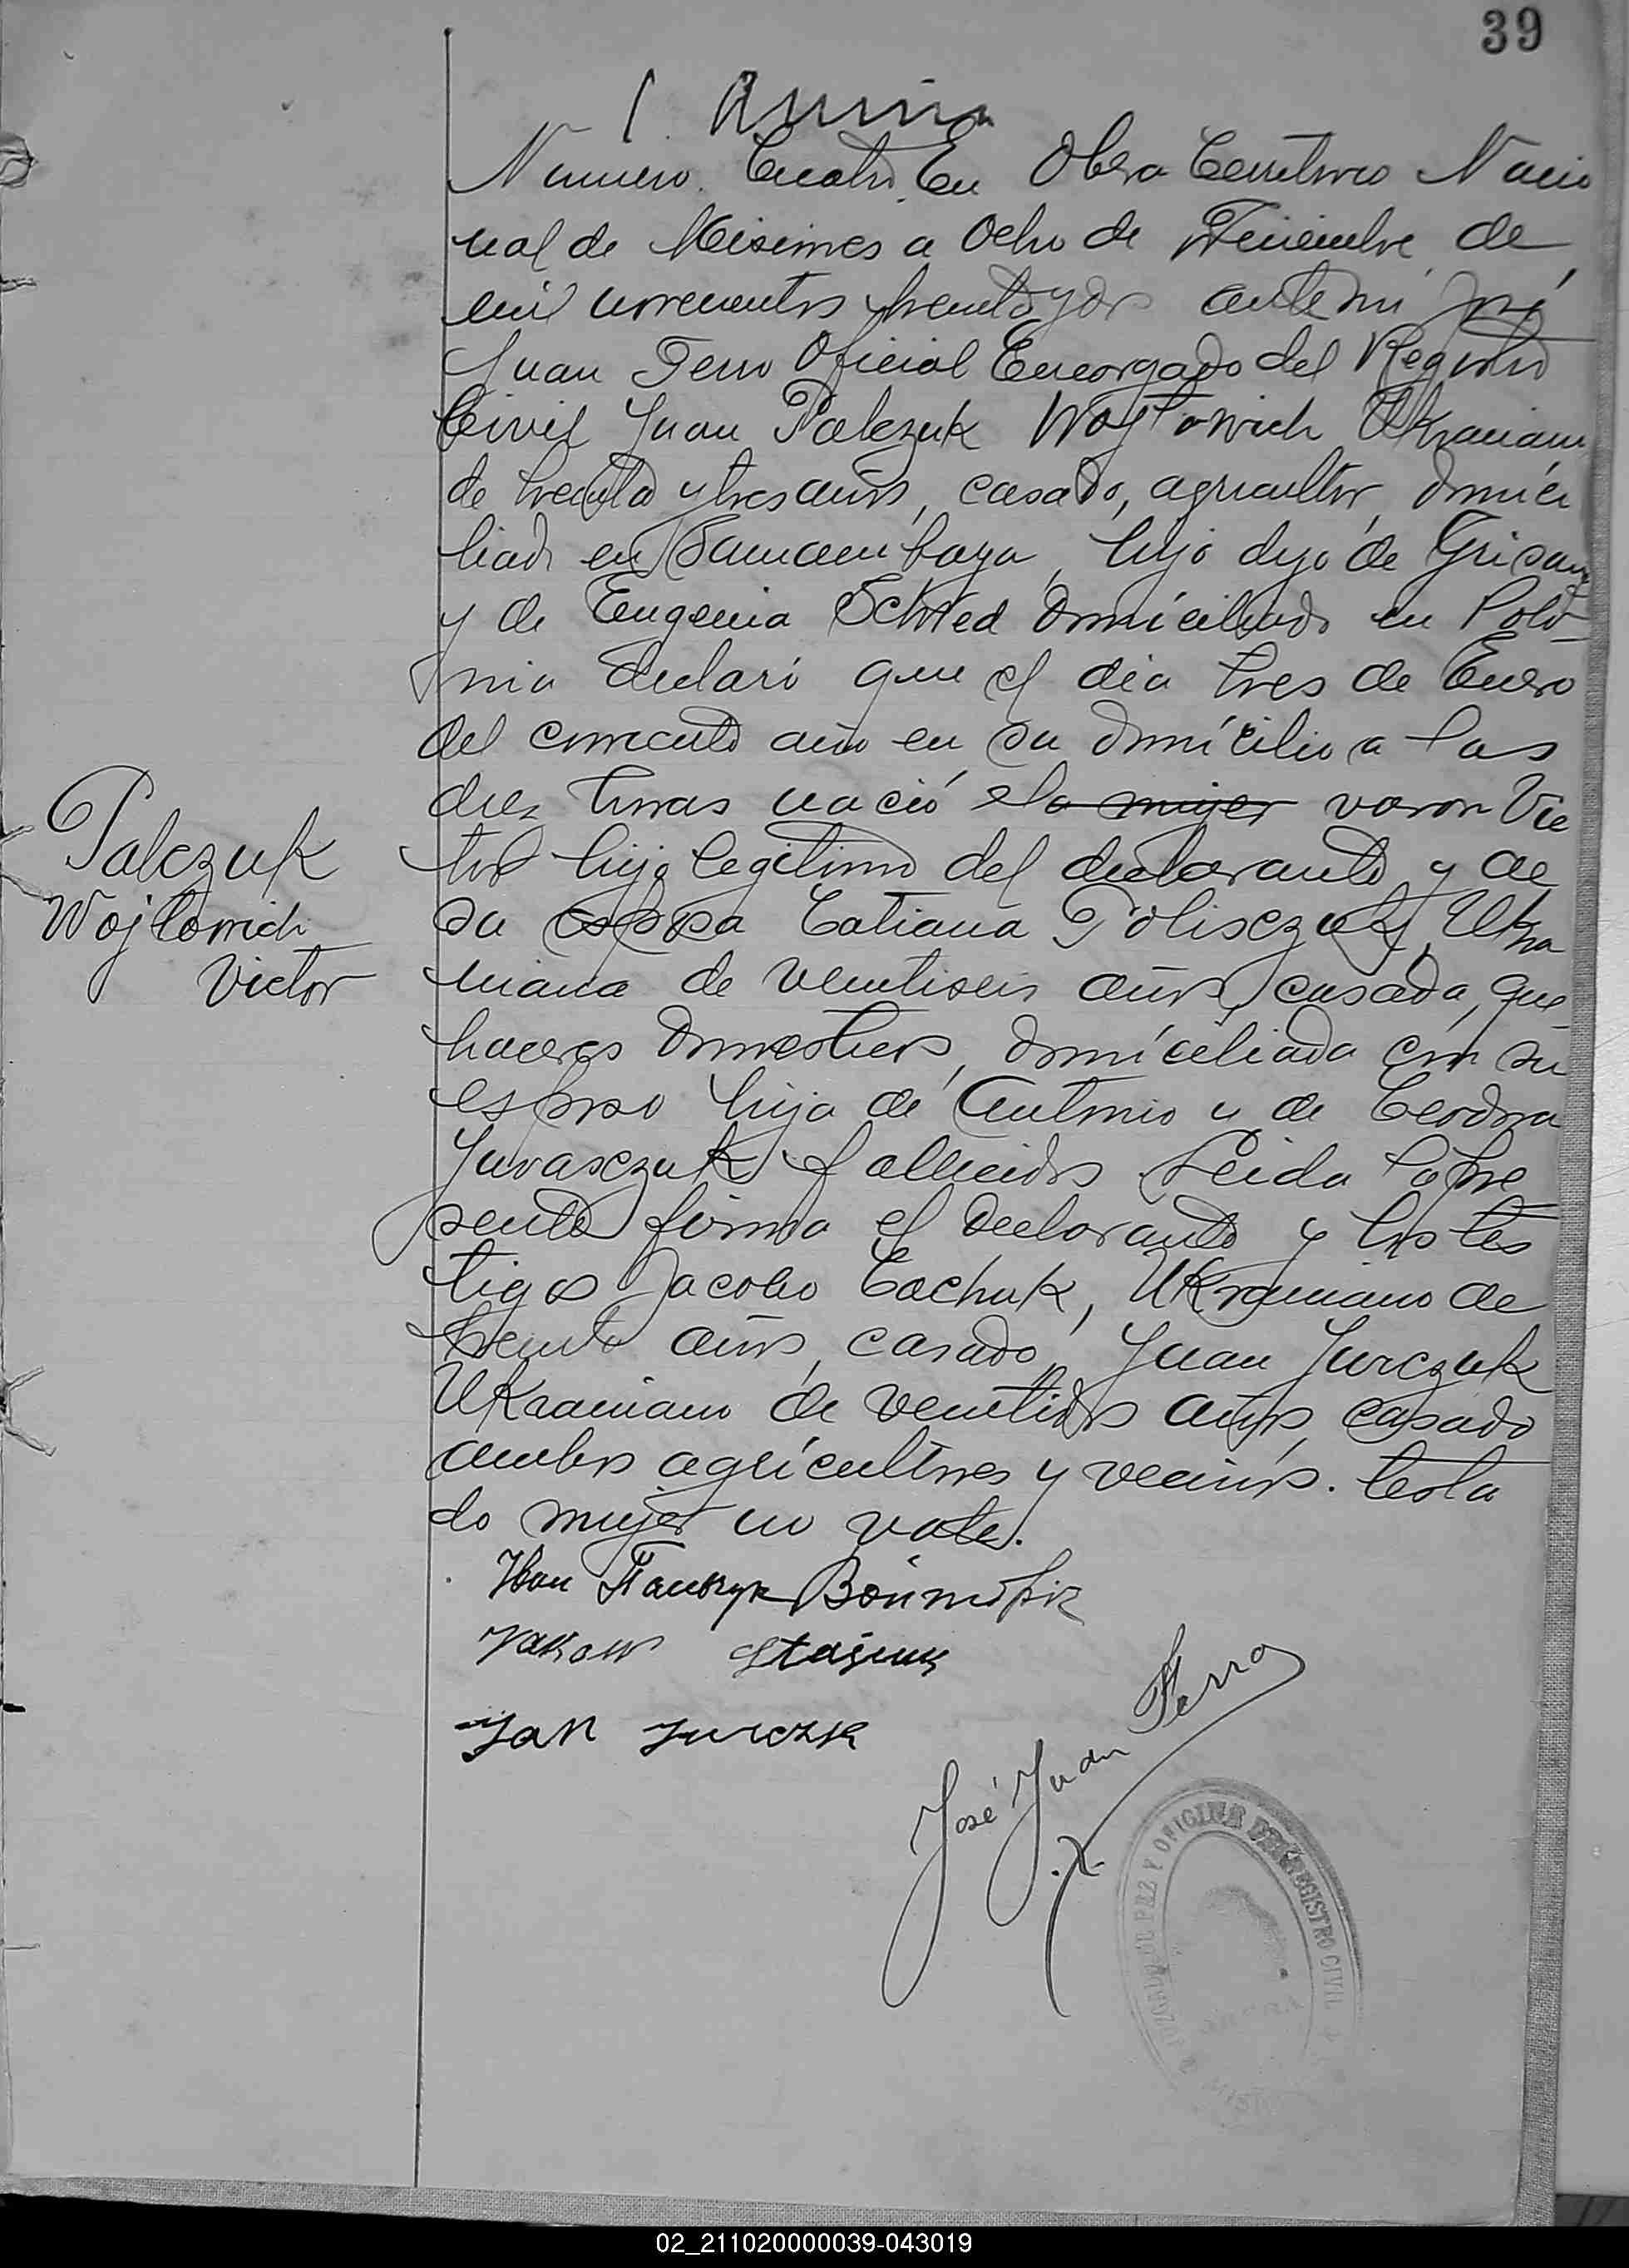 39
Numero Cuatro En Obera Territorio Nacio
nal de Misiones a Ocho de de
mil novecientos treinta y dos ante mi José
Juan Ferro Oficial Encargado del Registro
Civil Juan Palczuk Wojtowich Ukraniano
de treinta y tres años, casado, agricultor, domici
liado en Samambaya, hijo dijo de
y de Eugenia domiciliado en Polo
nia declaró que el dia tres de Enero
del corriente año en su domicilio a las
diez horas nació el la mujer varon Vic
tor hijo legitimo del declarante y de
su esposa Tatiana Polisczuk, Ukra
niana de veintiseis años, casada, que
haceres domesticos, domiciliada con su
esposo hija de Antonio y de Teodora
Jurasczuk fallecidos Leida la pre
sente firma el declarante y los tes
tigos Jacobo Tachuk, Ukraniano de
treinta años, casado, Juan Jurczuk
Ukraniano de veintidos años, casado
ambos agricultores y vecinos. Testa
do mujer no vale.
Palczuk
Wojtowich
Victor
Jan Jurczk
José Juan Ferro
JUZGADO DE PAZ Y OFICINA DEL REGISTRO CIVIL
02_211020000039-043019